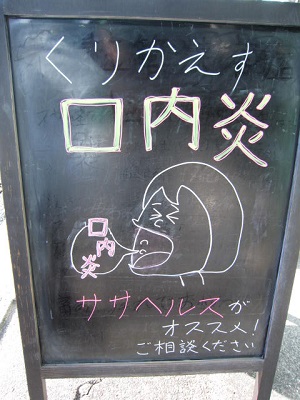 くりかえす
口内炎
口内炎
ササヘルスが
オススメ!
ご相談ください